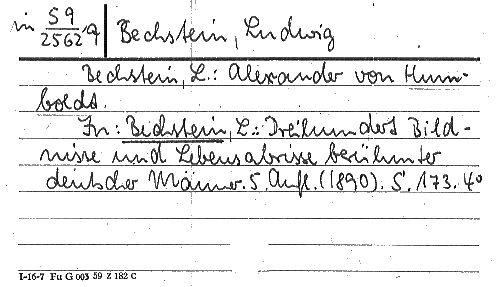 in 59/2562 9 Bechstein, Ludwig
Bechstein, L.: Alexander von Hum-
boldt.
In: Bechstein, L.: Dreihundert Bild-
nisse und Lebensabrisse berühmter
deutscher Männer. 5. Aufl. (1890). S. 173. 4°
I-16-7 Fu G 003 59 Z 182 C